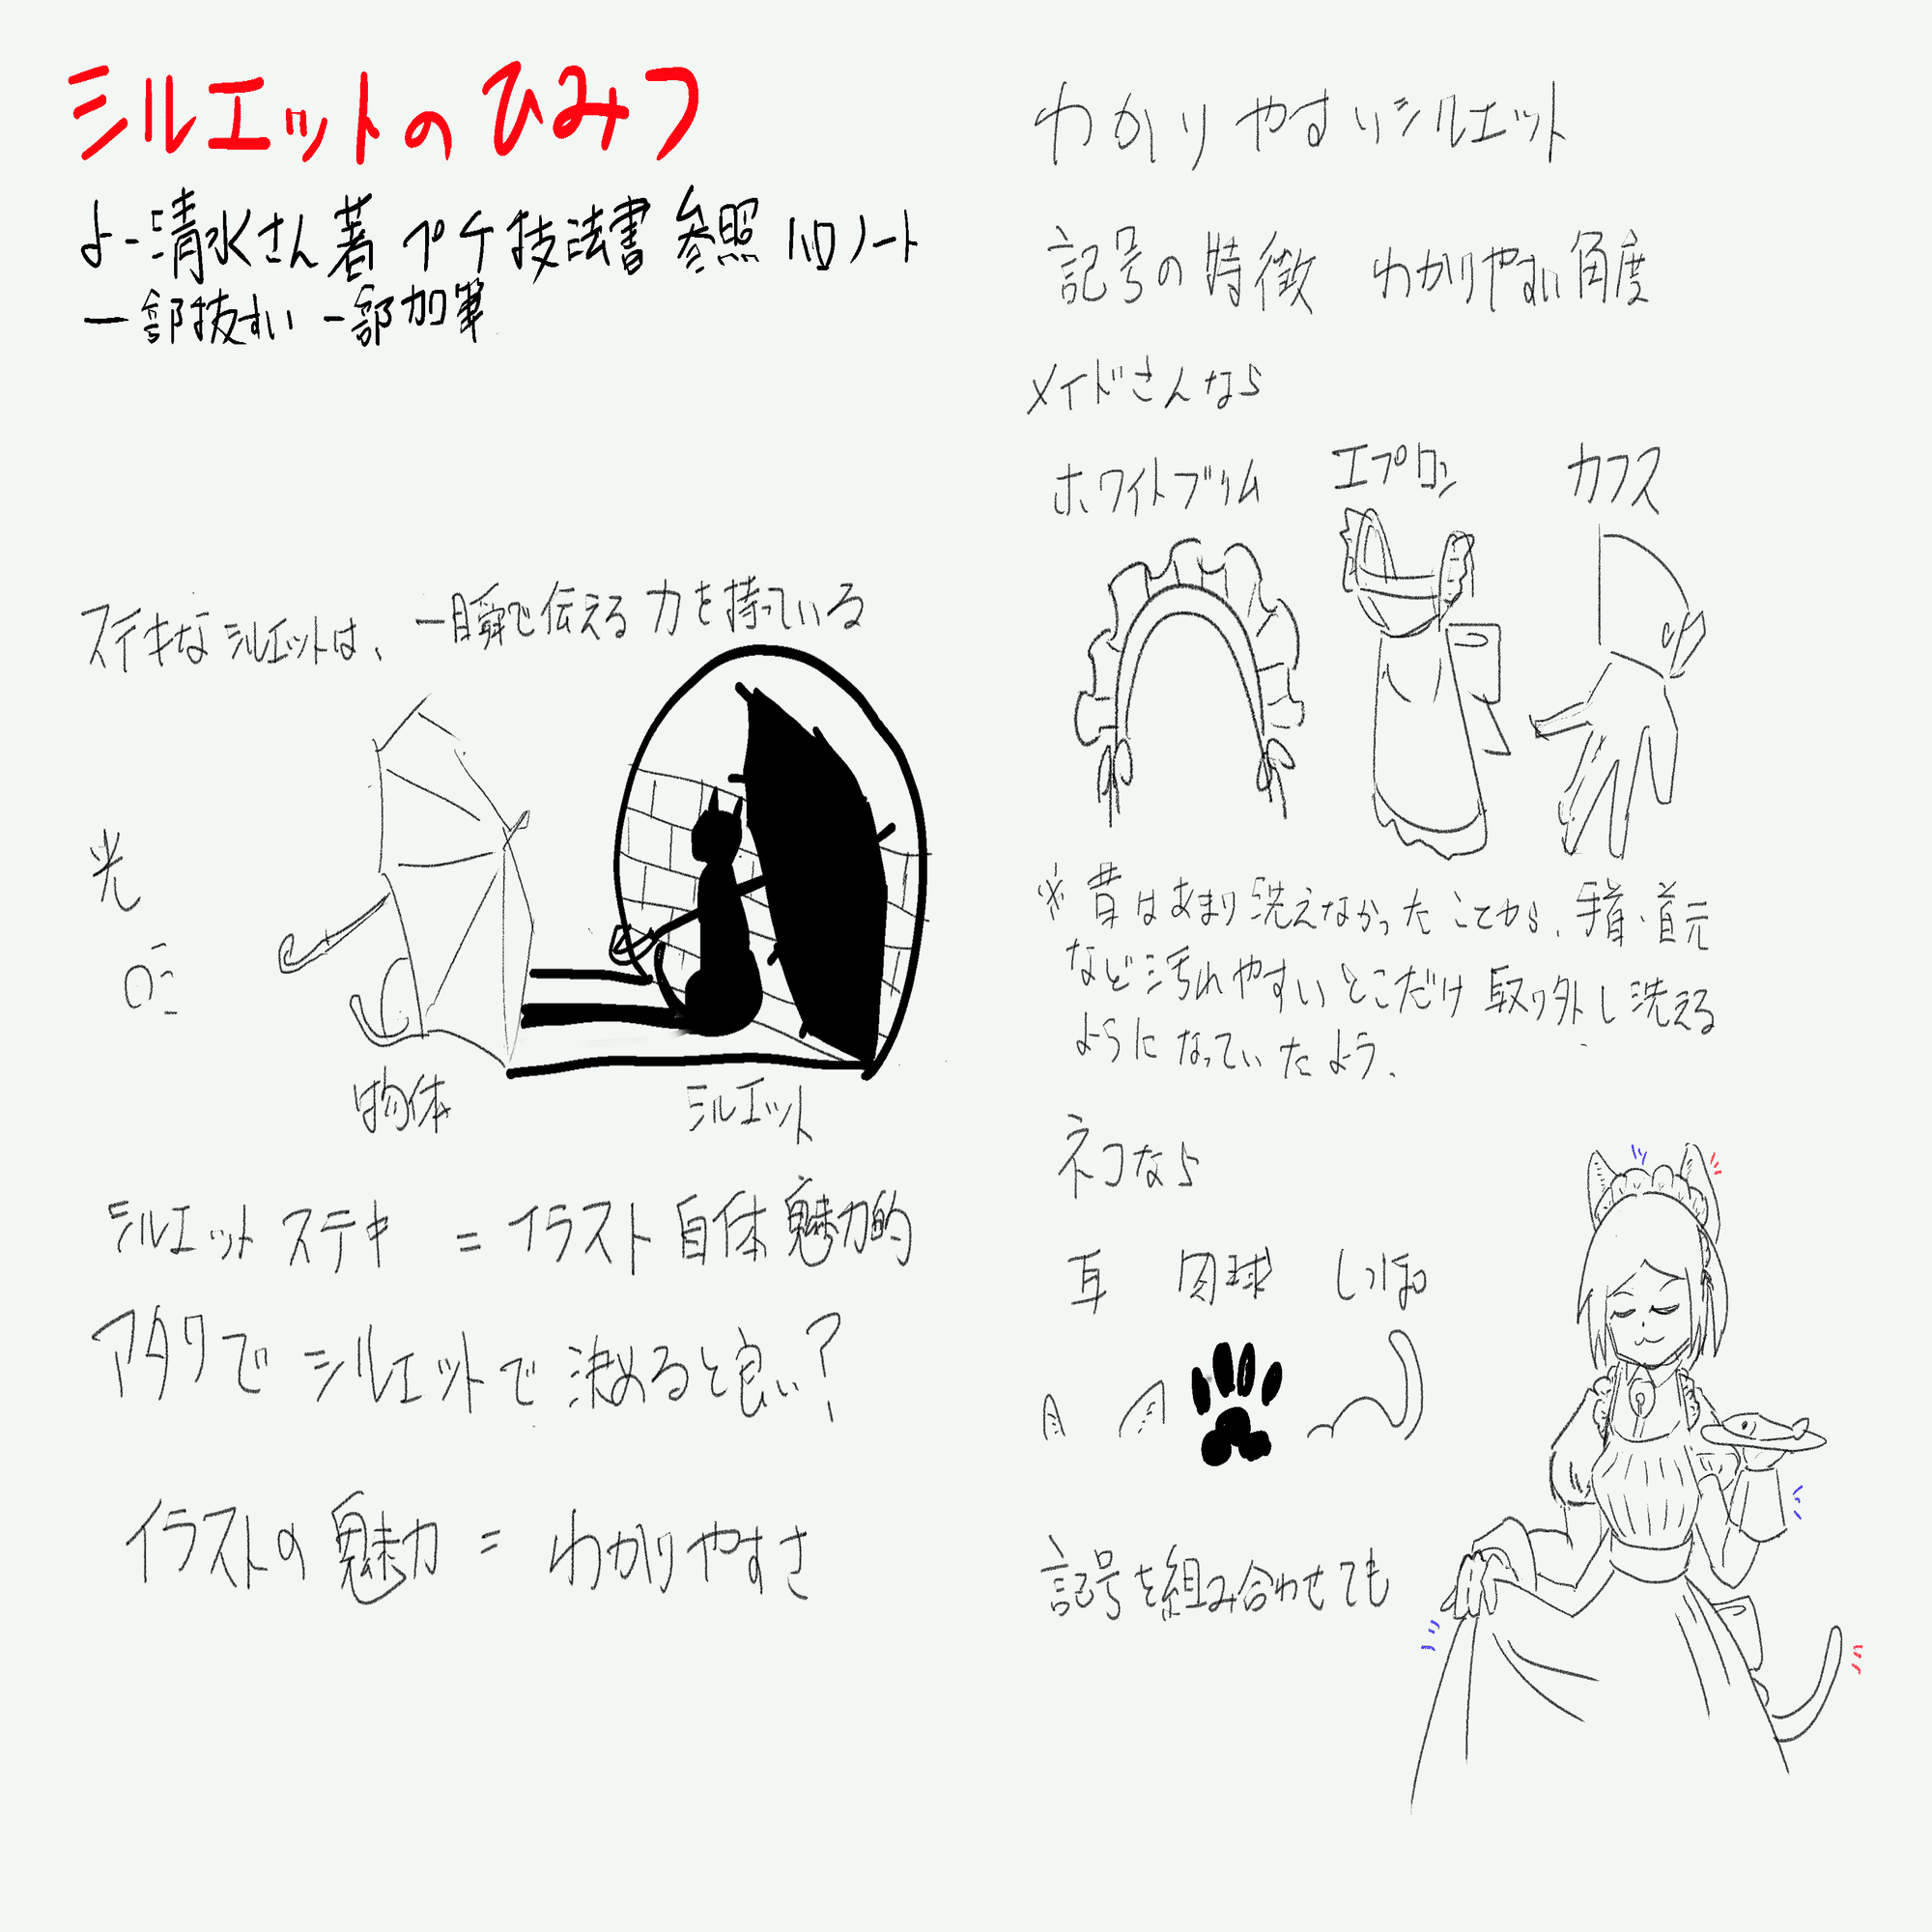 シルエットのひみつ
よー清水さん著 プチ技法書 参照 ハロノート
一部抜すい 一部加筆
ステキなシルエットは、一瞬で伝える力を持っている
光
物体
シルエット
シルエットステキ = イラスト自体魅力的
アタリで シルエットで決めると良い?
イラストの魅力 = わかりやすさ
わかりやすいシルエット
記号の特徴 わかりやすい角度
メイドさんなら
ホワイトブリム
エプロン
カフス
※昔はあまり洗えなかったことから、手首・首元
など汚れやすいとこだけ取り外し洗える
ようになっていたよう.
ネコなら
耳 肉球 しっぽ
記号を組み合わせても